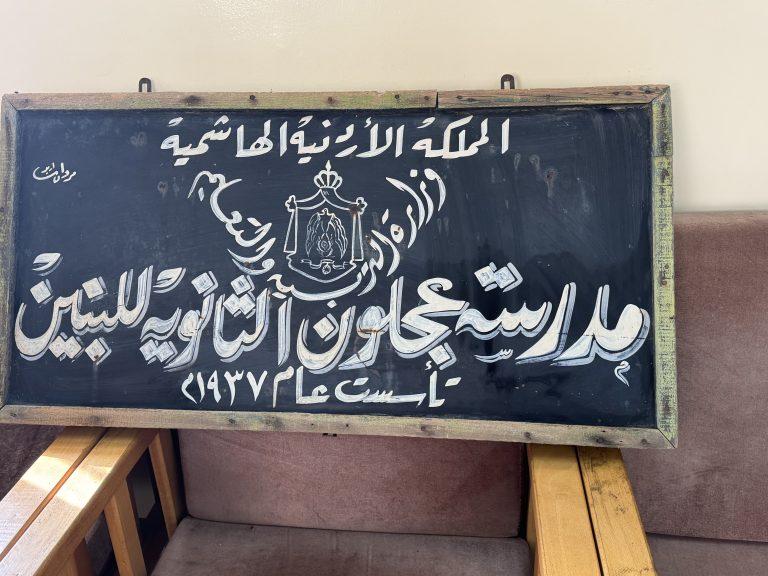 المملكة الأردنية الهاشمية
وزارة التربية والتعليم
مدرسة عجلون الثانوية للبنين
تأسست عام ١٩٣٧م